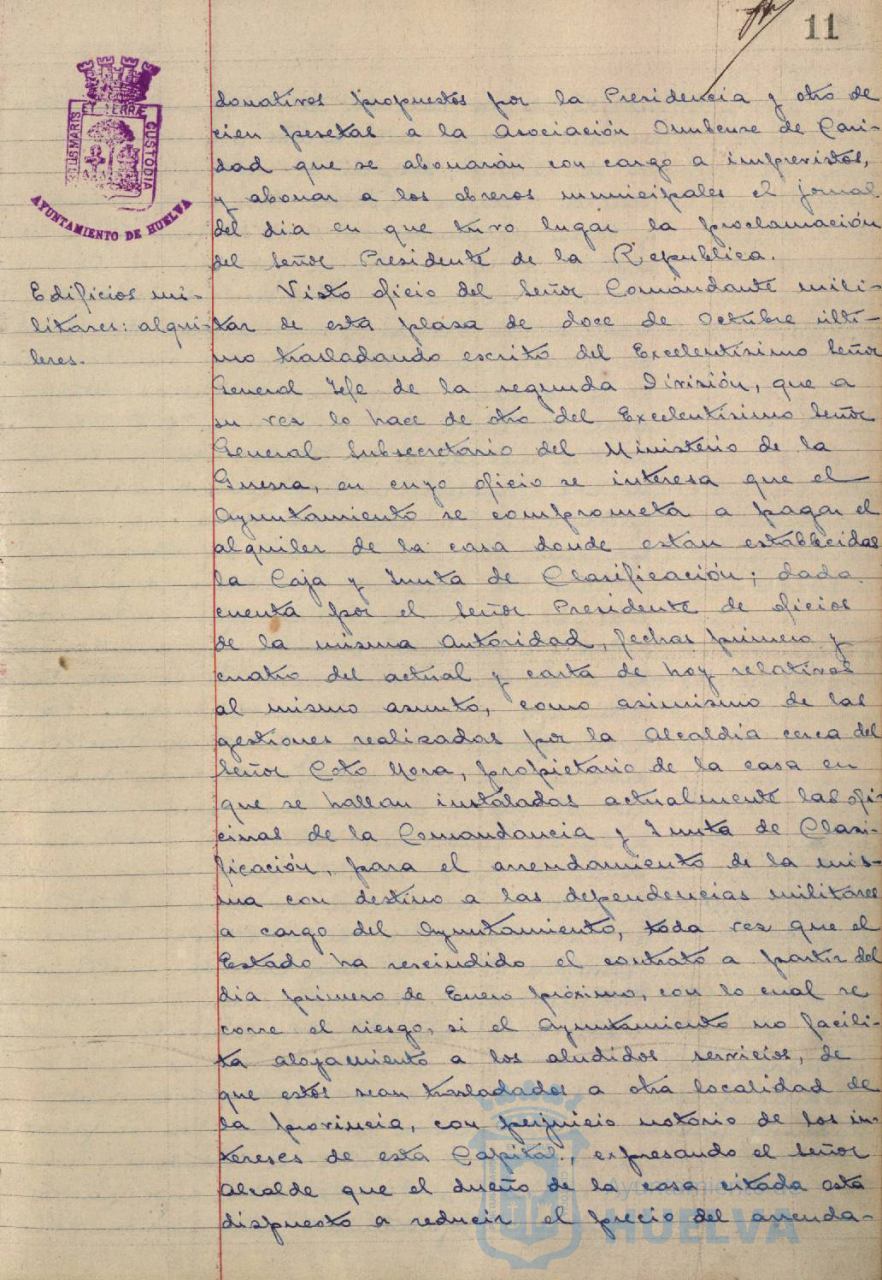 11
PORTUS MARIS ET TERRÆ CUSTODIA
AYUNTAMIENTO DE HUELVA
donativos propuestos por la Presidencia y otro de
cien pesetas a la Asociación Onubense de Cari-
dad que se abonarán con cargo a imprevistos,
y abonar a los obreros municipales el jornal
del dia en que tuvo lugar la proclamación
del Señor Presidente de la Republica.
Edificios mi-
litares: alqui-
leres.
Visto oficio del Señor Comandante mili-
tar de esta plaza de doce de Octubre ulti-
mo trasladando escrito del Excelentisimo Señor
General Jefe de la segunda División, que a
su vez lo hace de otro del Excelentisimo Señor
General Subsecretario del Ministerio de la
Guerra, en cuyo oficio se interesa que el
Ayuntamiento se comprometa a pagar el
alquiler de la casa donde estan establecidas
la Caja y Junta de Clasificación; dada
cuenta por el Señor Presidente de oficios
de la misma autoridad, fechas primero y
cuatro del actual y carta de hoy relativos
al mismo asunto, como asimismo de las
gestiones realizadas por la Alcaldia cerca del
Señor Coto Mora, propietario de la casa en
que se hallan instaladas actualmente las ofi-
cinas de la Comandancia y Junta de Clasi-
ficación, para el arrendamiento de la mis-
ma con destino a las dependencias militares
a cargo del Ayuntamiento, toda vez que el
Estado ha rescindido el contrato a partir del
dia primero de Enero próximo, con lo cual se
corre el riesgo, si el Ayuntamiento no facili-
ta alojamiento a los aludidos servicios, de
que estos sean trasladados a otra localidad de
la provincia, con perjuicio notorio de los in-
tereses de esta Capital, expresando el Señor
Alcalde que el dueño de la casa citada está
dispuesto a reducir el precio del arrenda-
Ayuntamiento de
HUELVA